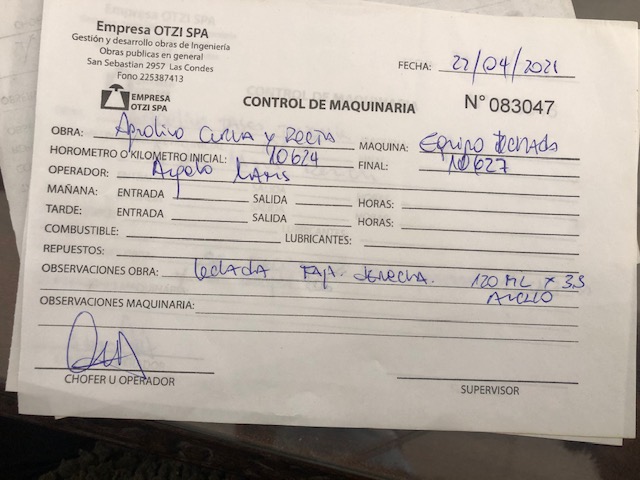 Empresa OTZI SPA
Gestión y desarrollo obras de Ingeniería
Obras publicas en general
San Sebastian 2957 Las Condes
Fono 225387413
FECHA: 22/04/2021
EMPRESA
OTZI SPA
CONTROL DE MAQUINARIA
N° 083047
OBRA: Curva y MAQUINA: Equipo
HOROMETRO O KILOMETRO INICIAL: 10624 FINAL: 10627
OPERADOR:
MAÑANA: ENTRADA SALIDA HORAS:
TARDE: ENTRADA SALIDA HORAS:
COMBUSTIBLE: LUBRICANTES:
REPUESTOS:
OBSERVACIONES OBRA: Faja derecha. 120 ML x 3,5
Ancho
OBSERVACIONES MAQUINARIA:
CHOFER U OPERADOR
SUPERVISOR